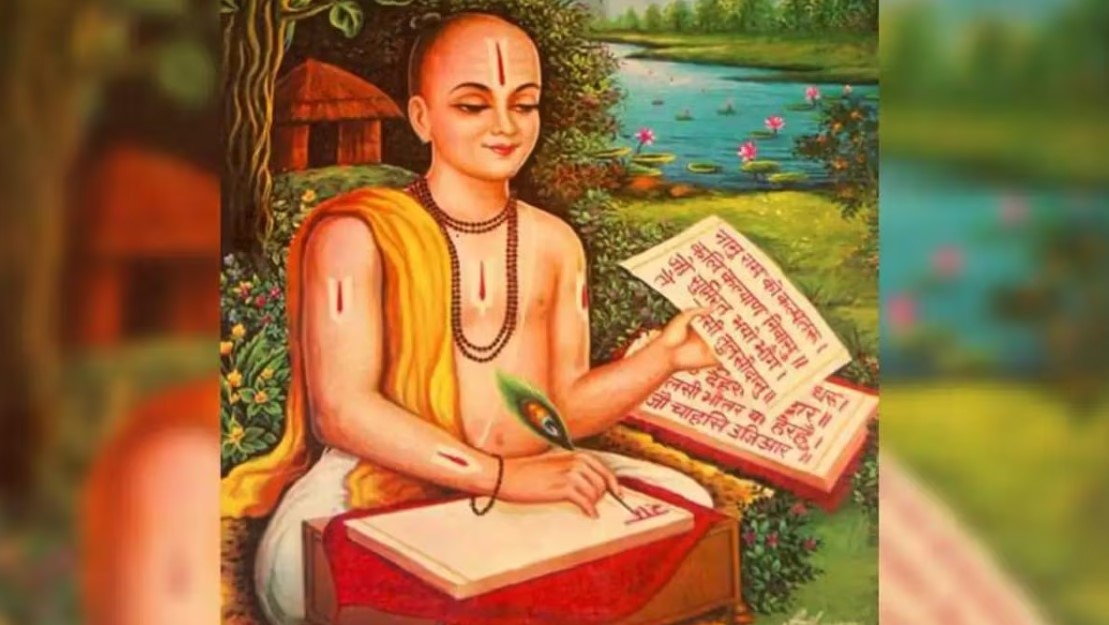 नामु राम को कल्पतरू ।
कलि कल्याण निवासु ॥
जो सुमिरत भयो भाँग ।
तुलसीदासु ॥
धरू ।
देहर द्वार ॥
लसी भीतर
जौ चाहसि उजिआर ॥